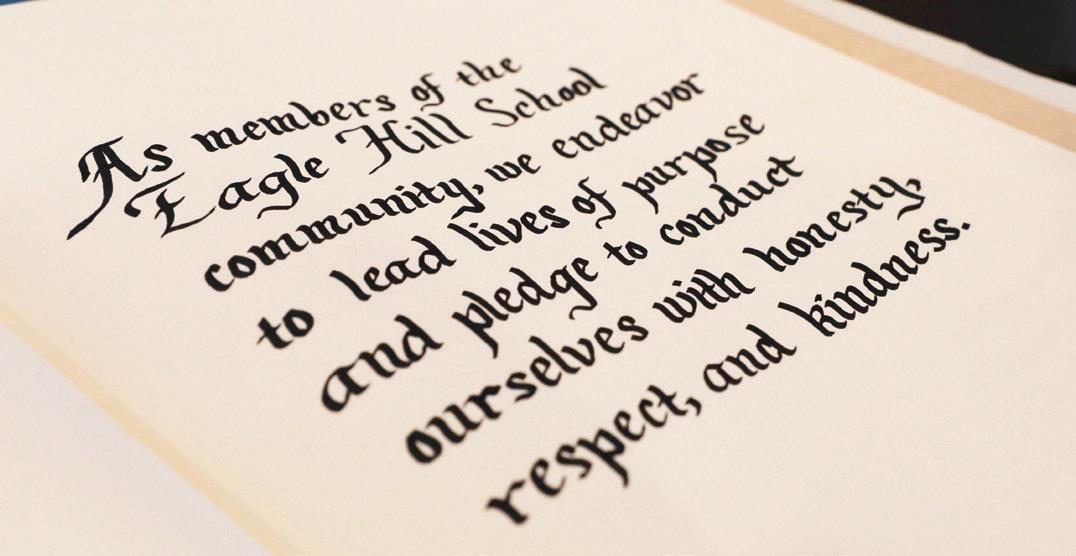 As members of the
Eagle Hill School
community, we endeavor
to lead lives of purpose
and pledge to conduct
ourselves with honesty,
respect, and kindness.